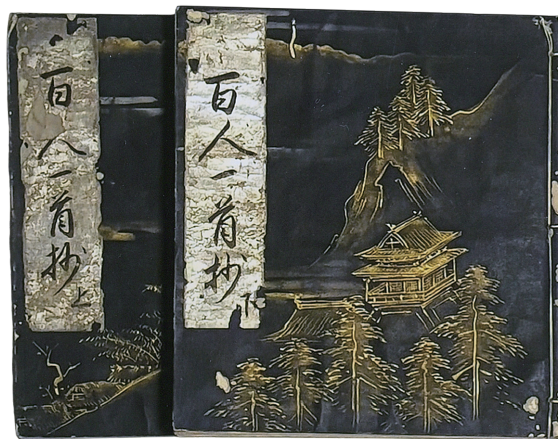 百人一首抄 下
百人一首抄 上